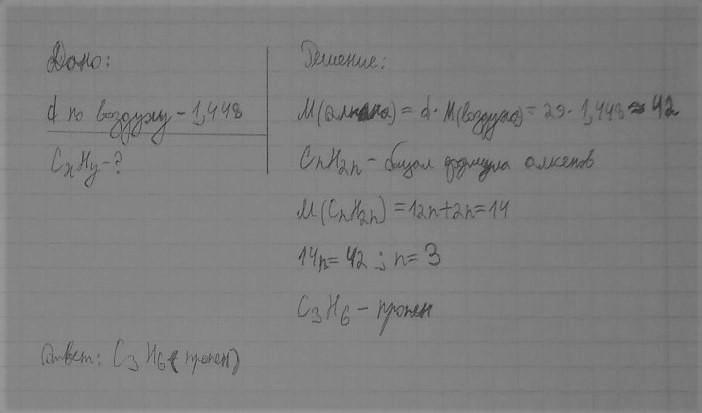 Дано:
d по воздуху - 1,448
CxHy-?
Решение:
M(алкена) = d · M(воздуха) = 29 · 1,448 ≈ 42
CnH2n - общая формула алкенов
M(CnH2n) = 12n+2n=14
14n=42 ; n=3
C3H6 - пропен
Ответ: C3H6 (пропен)